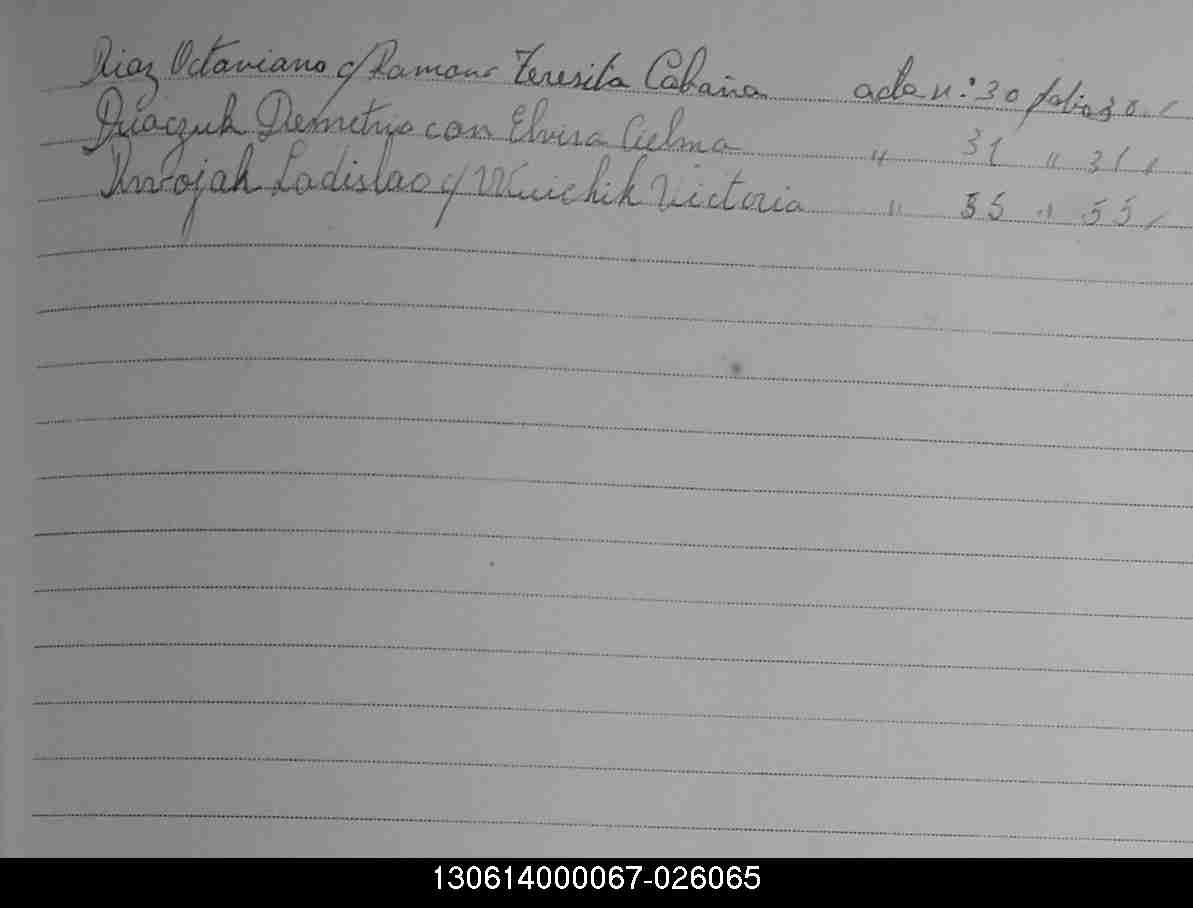 Diaz Octaviano c/ Ramona Teresita Cabaña acta n: 30 folio 30 /
Diaczuk Demetrio con Elvira Cielma " 31 " 31 /
Ladislao c/ Victoria " 55 " 55 /
130614000067-026065